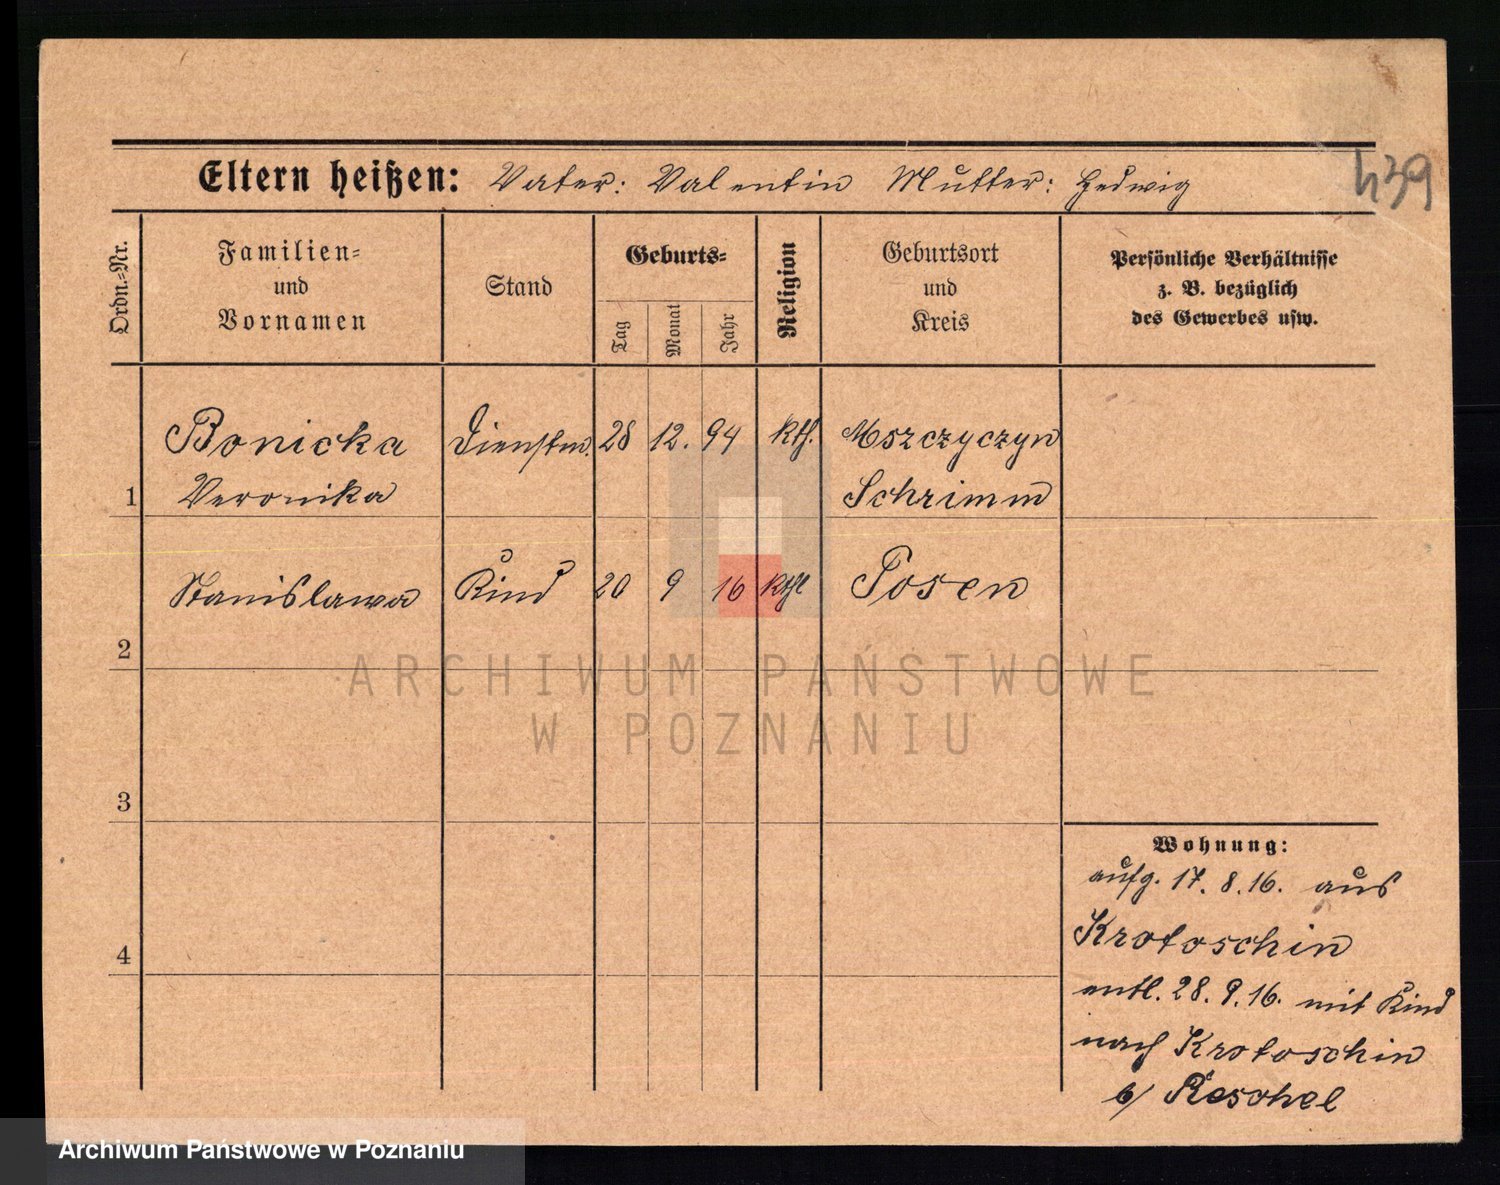 Eltern heißen: Vater: Valentin Mutter: Hedwig
439
Ordn.-Nr.
Familien-
und
Vornamen
Stand
Geburts-
Tag
Monat
Jahr
Religion
Geburtsort
und
Kreis
Persönliche Verhältnisse
z. B. bezüglich
des Gewerbes usw.
Bonicka Dienstm. 28 12. 94 kth. Mszczyczyn
1 Veronika Schrimm
Stanislawa Kind 20 9 16 kthl Posen
2
ARCHIWUM PAŃSTWOWE
W POZNANIU
3
Wohnung:
aufg. 17. 8. 16. aus
Krotoschin
4
entl. 28. 9. 16. mit Kind
nach Krotoschin
b/ Reschel
Archiwum Państwowe w Poznaniu